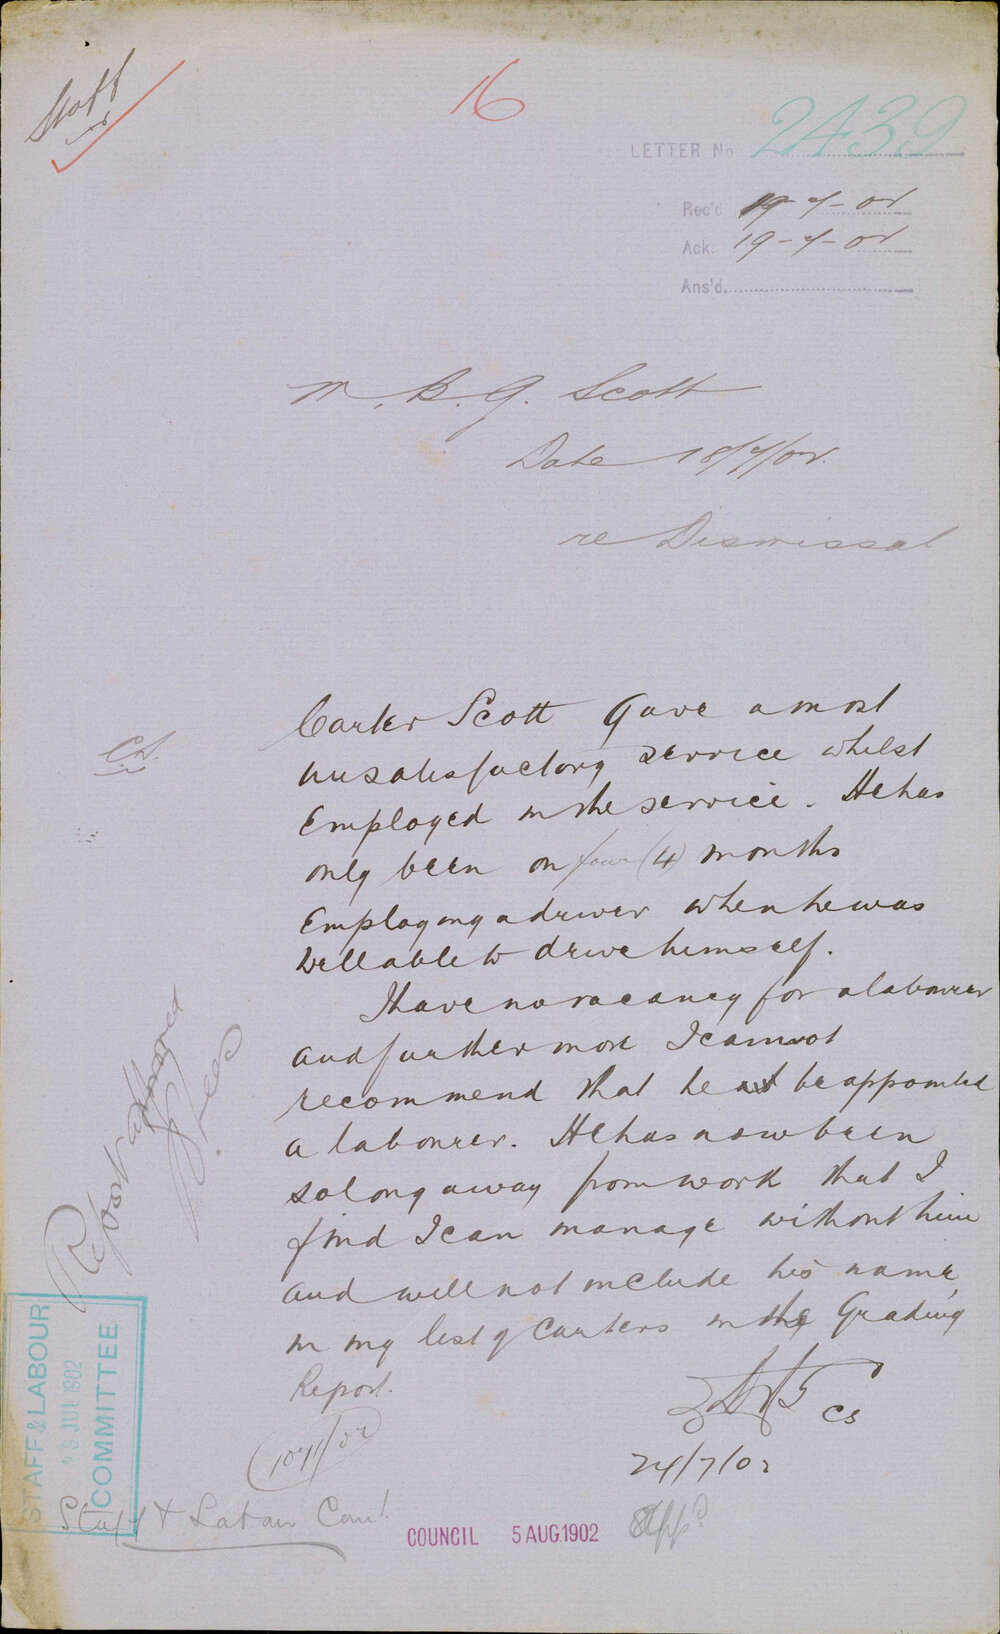 Staff
16
LETTER No 2439
Rec'd 19-7-02
Ack. 19-7-02
Ans'd.
M. B. G. Scott
Date 18/7/02.
re Dismissal
Carter Scott Gave a most
unsatisfactory service whilst
Employed in the service. He has
only been on four (4) months
Employing a driver when he was
well able to drive himself.
I have no vacancy for a labourer
and furthermore I cannot
recommend that he be appointed
a labourer. He has now been
so long away from work that I
find I can manage without him
and will not include his name
in my list of Carters in the Grading
Report.
CS
24/7/02
Report approved
STAFF & LABOUR
JUL 1902
COMMITTEE
Staff & Labour Com
COUNCIL 5 AUG. 1902
App